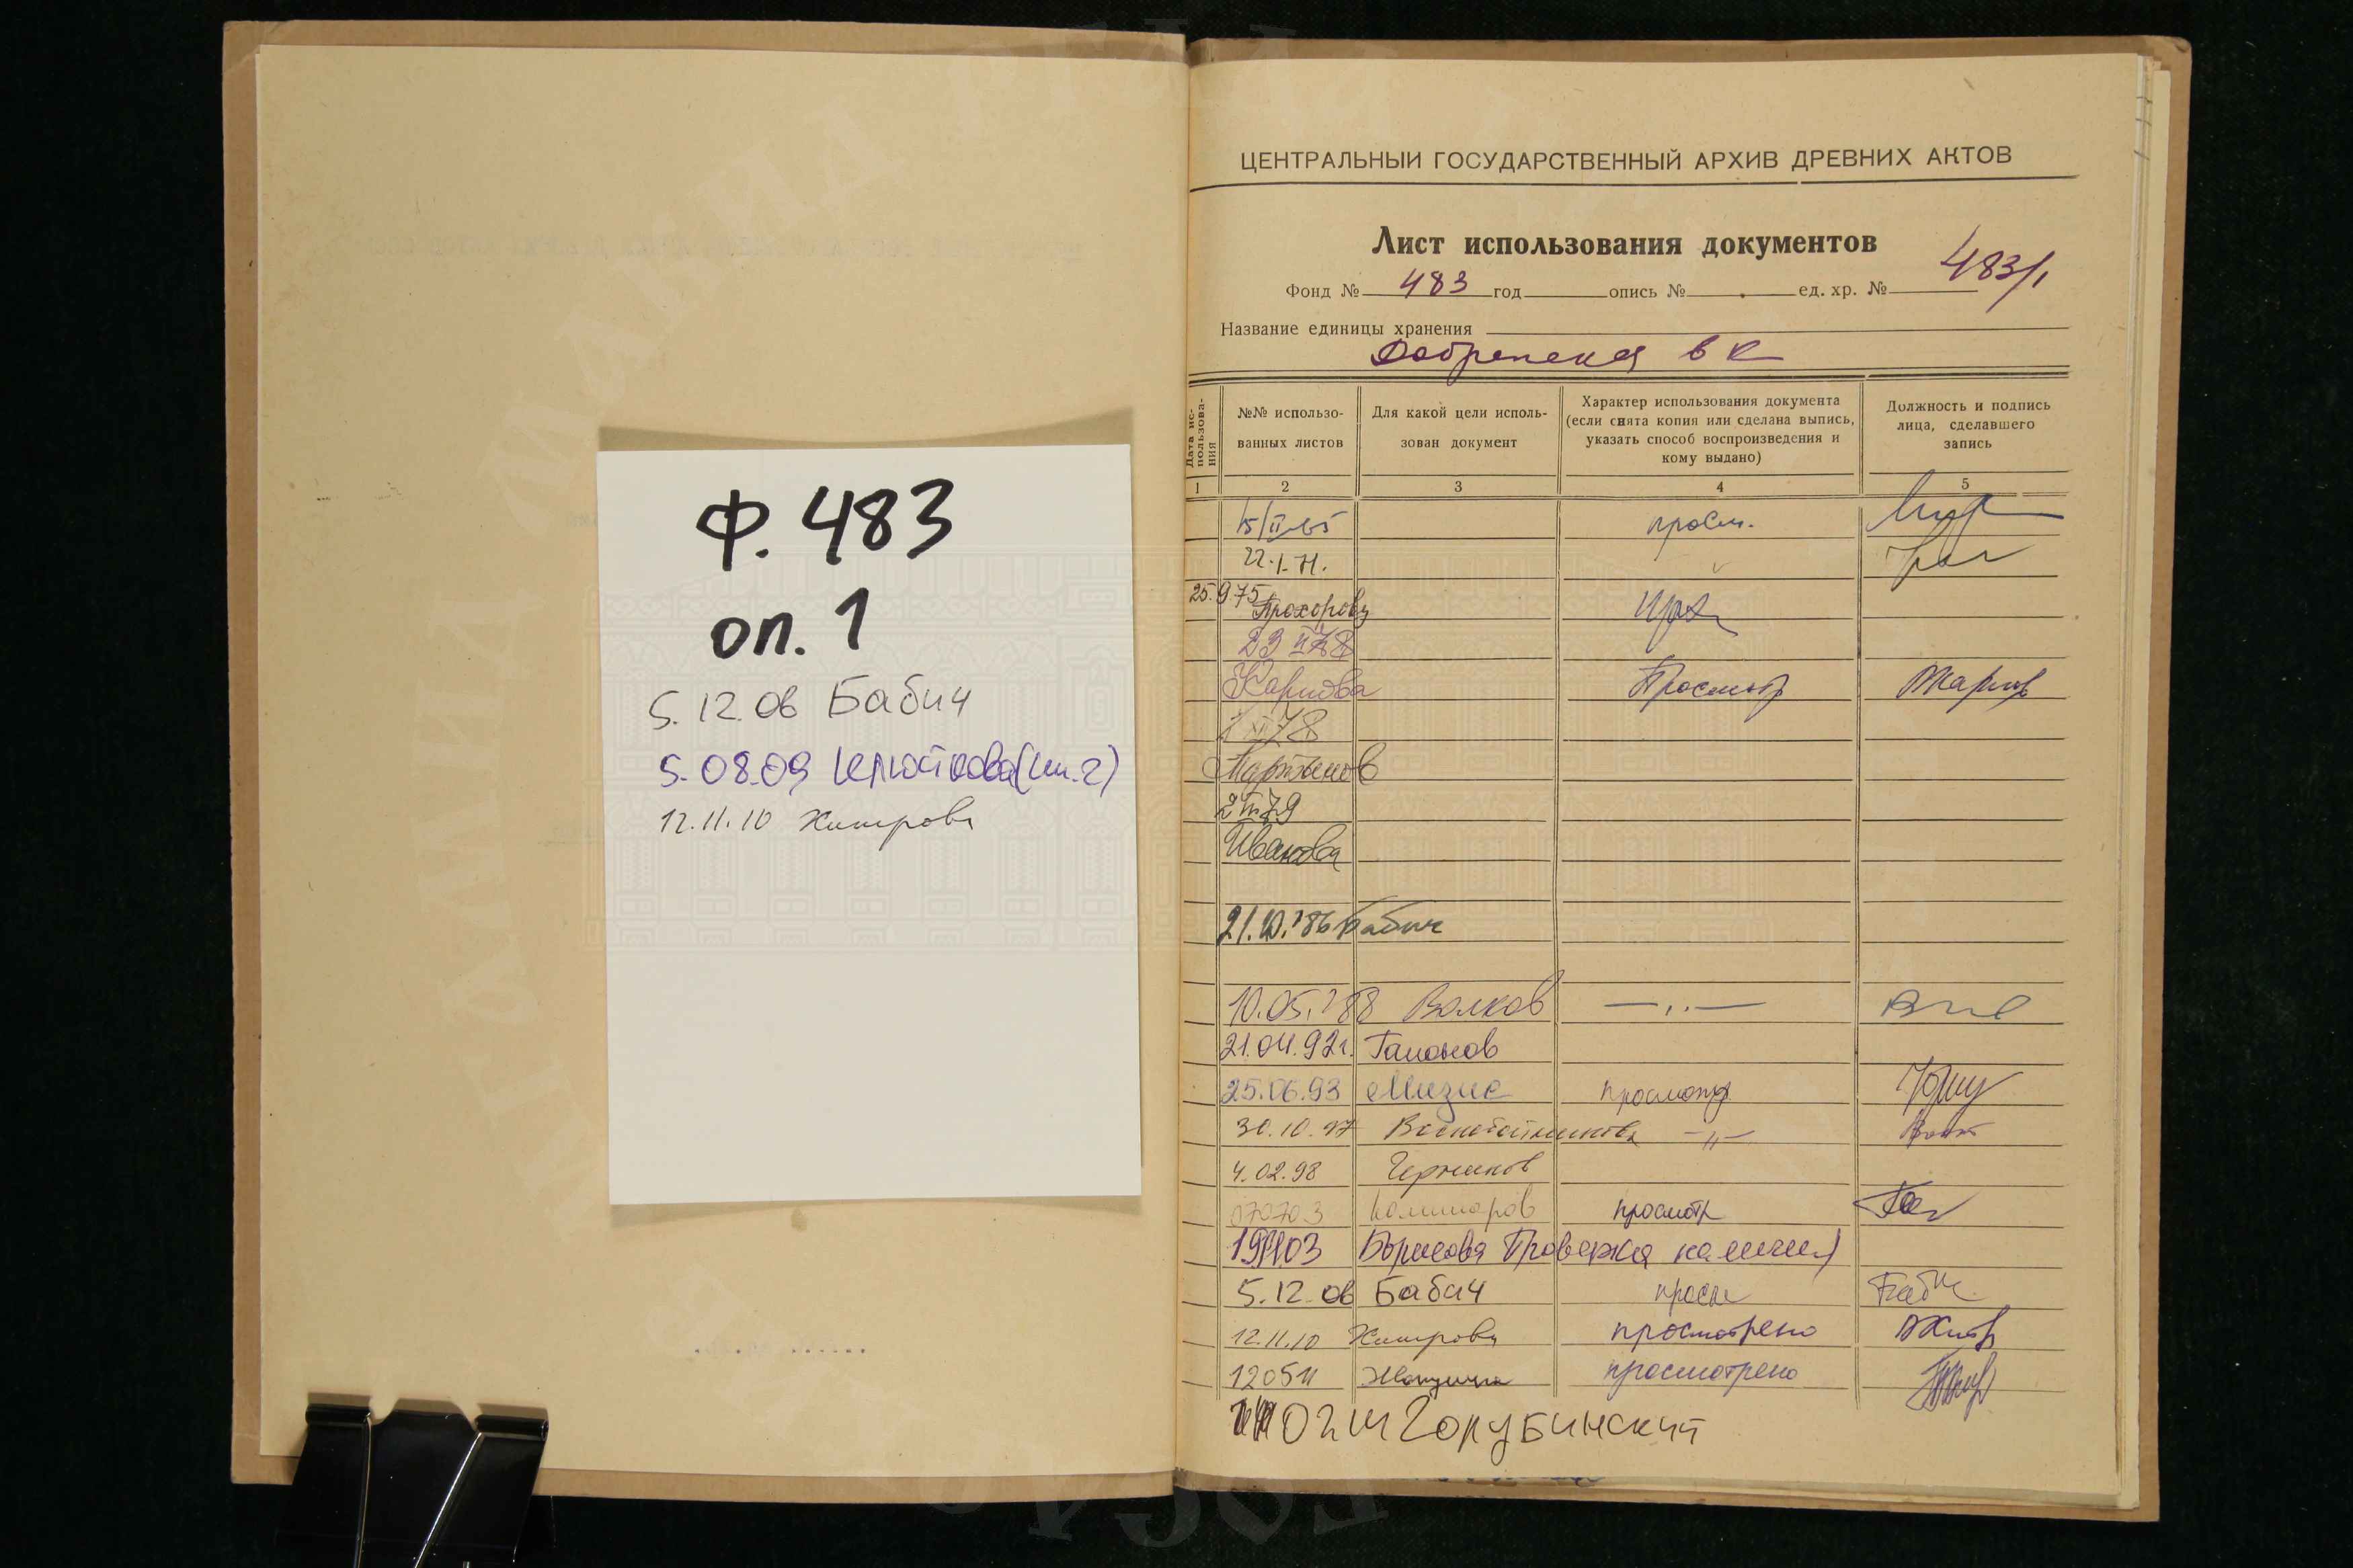 Ф. 483
оп. 1
5. 12. 06 Бабич
5. 08. 09
12. 11. 10 Хитрова
ЦЕНТРАЛЬНЫЙ ГОСУДАРСТВЕННЫЙ АРХИВ ДРЕВНИХ АКТОВ
Лист использования документов
Фонд № 483 год опись № ед. хр. № 483/1
Название единицы хранения
Добренская в к
Дата использования
№№ использованных листов
Для какой цели использован документ
Характер использования документа (если снята копия или сделана выпись, указать способ воспроизведения и кому выдано)
Должность и подпись лица, сделавшего запись
1 2 3 4 5
15/II-65 просм.
22.I-71.
25.9 75 Прохорова
23 II 78
Карпова Просмотр
78
Мартынов
79
Иванова
21. '86 Бабич
10.05.'88 Волков —„—
21.04.92г.
25.06.93 Мизис просмотр
30.10.97 —„—
4.02.98
070703 просмотр
03 Борисова Проверка наличия
5.12.06 Бабич просм
12.11.10 Хитрова просмотрено
120511 просмотрено